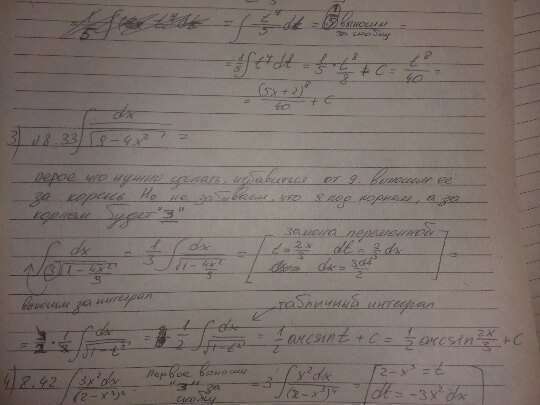 = ∫ t⁷/5 dt = 1/5 выносим за скобку =
= 1/5 ∫ t⁷ dt = 1/5 · t⁸/8 + C = t⁸/40 =
= (5x+2)⁸/40 + C
3) 18.33 ∫ dx/√(9-4x²) =
перое что нужно сделать, избавится от 9. выносим её
за корень. Но не забываем, что 9 под корнем, а за
корнем будет "3"
∫ dx/(3√(1-4x²/9)) = 1/3 ∫ dx/√(1-4x²/9) = [замена переменной t=2x/3 dt=2/3 dx dx=3dt/2] =
выносим за интеграл
табличный интеграл
∫ dx/√(1-t²) = 1/2 ∫ dx/√(1-t²) = 1/2 arcsin t + C = 1/2 arcsin 2x/3 + C
4) 8.42 ∫ 3x²dx/(2-x³)⁴ первое выносим "3" за скобку = 3 ∫ x²dx/(2-x³)⁴ = [2-x³=t dt=-3x²dx